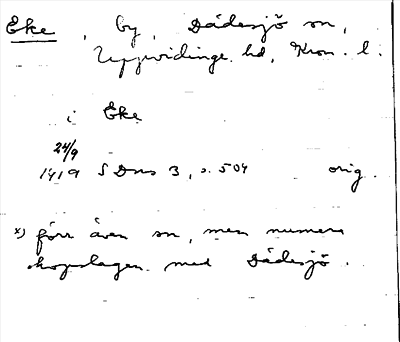 Eke, by, Dädesjö sn,
Uppvidinge hd, Kron. l.
i Eke
24/9
1419 SDns 3, s. 504 orig.
x) förr även sn, men numera
ihopslagen med Dädesjö.